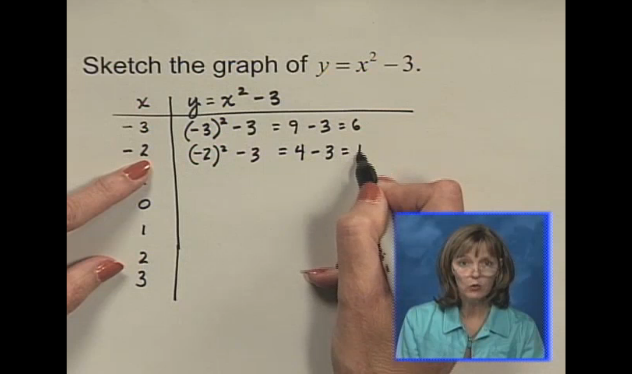 Sketch the graph of y = x² – 3.
x y = x² – 3
– 3 (–3)² – 3 = 9 – 3 = 6
– 2 (–2)² – 3 = 4 – 3 = 1
0
1
2
3